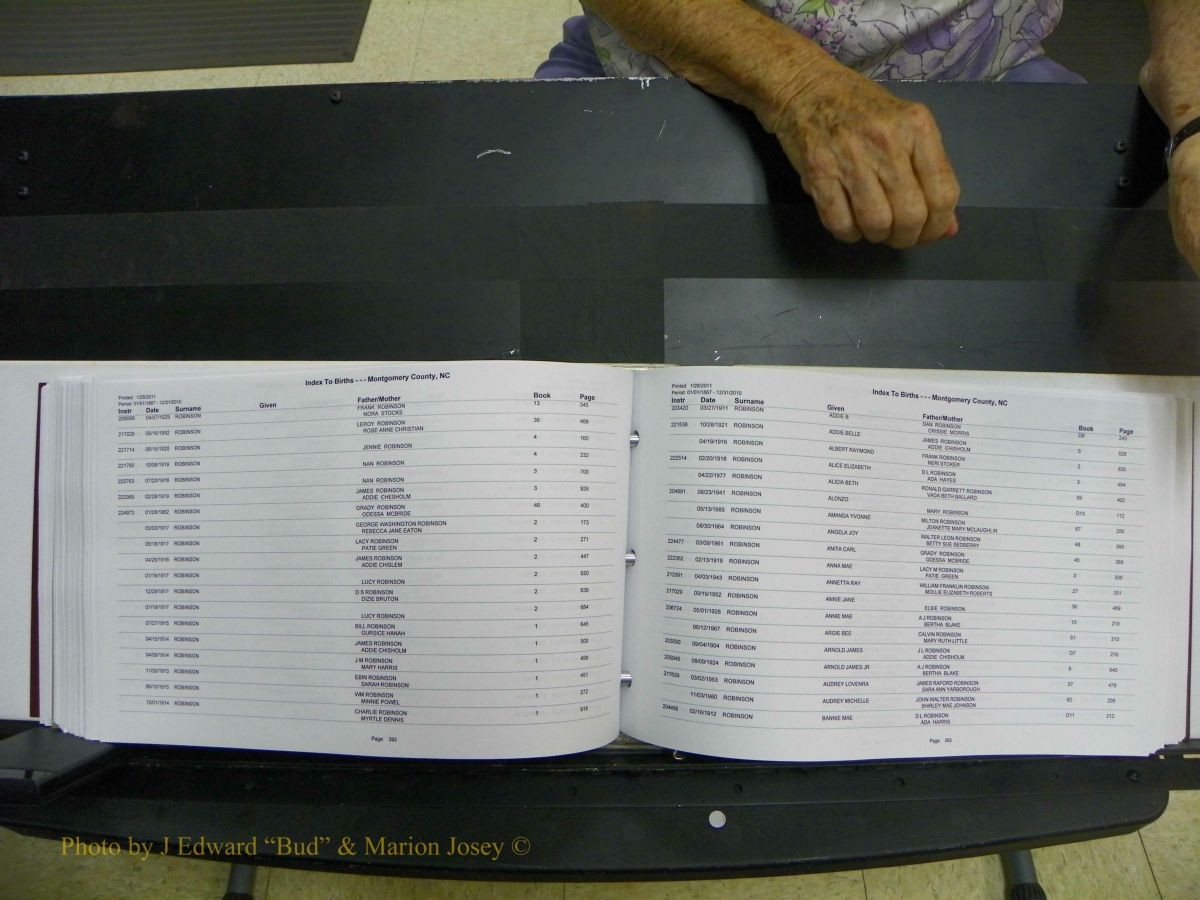 Index To Births - - - Montgomery County, NC
Printed: 1/28/2011
Period: 01/01/1867 - 12/31/2010
Instr Date Surname Given Father/Mother Book Page
206090 04/07/1925 ROBINSON FRANK ROBINSON 13 345
NORA STOCKS
217028 05/16/1952 ROBINSON LEROY ROBINSON 36 468
ROSE ANNE CHRISTIAN
221714 06/15/1920 ROBINSON JENNIE ROBINSON 4 160
221785 10/06/1919 ROBINSON NAN ROBINSON 4 232
222763 07/23/1918 ROBINSON NAN ROBINSON 3 700
222989 02/28/1919 ROBINSON JAMES ROBINSON 3 926
ADDIE CHESHOLM
224972 01/28/1962 ROBINSON GRADY ROBINSON 46 400
ODESSA MCBRIDE
03/03/1917 ROBINSON GEORGE WASHINGTON ROBINSON 2 173
REBECCA JANE EATON
05/18/1917 ROBINSON LACY ROBINSON 2 271
PATIE GREEN
04/29/1916 ROBINSON JAMES ROBINSON 2 447
ADDIE CHISLEM
01/19/1917 ROBINSON LUCY ROBINSON 2 550
12/29/1917 ROBINSON D S ROBINSON 2 638
DIZIE BRUTON
01/19/1917 ROBINSON LUCY ROBINSON 2 684
07/27/1915 ROBINSON BILL ROBINSON 1 645
GURSICE HANAH
04/15/1914 ROBINSON JAMES ROBINSON 1 500
ADDIE CHISHOLM
04/09/1914 ROBINSON J M ROBINSON 1 499
MARY HARRIS
11/30/1913 ROBINSON EBIN ROBINSON 1 451
SARAH ROBINSON
06/10/1915 ROBINSON WM ROBINSON 1 272
MINNIE POWEL
12/01/1914 ROBINSON CHARLIE ROBINSON 1 918
MYRTLE DENNIS
Page: 392
Index To Births - - - Montgomery County, NC
Printed: 1/28/2011
Period: 01/01/1867 - 12/31/2010
Instr Date Surname Given Father/Mother Book Page
203420 03/27/1911 ROBINSON ADDIE B DAN ROBINSON D8 243
CRISSIE MORRIS
221538 10/28/1921 ROBINSON ADDIE BELLE JAMES ROBINSON 5 528
ADDIE CHISHOLM
04/19/1916 ROBINSON ALBERT RAYMOND FRANK ROBINSON 2 835
NERI STOKER
222514 02/20/1918 ROBINSON ALICE ELIZABETH D L ROBINSON 3 454
ADA HAYES
04/22/1977 ROBINSON ALICIA BETH RONALD GARRETT ROBINSON 59 462
VADA BETH BALLARD
204891 08/23/1941 ROBINSON ALONZO MARY ROBINSON D13 112
05/13/1985 ROBINSON AMANDA YVONNE MILTON ROBINSON 67 200
JEANNETTE MARY MCLAUGHLIN
08/30/1964 ROBINSON ANGELA JOY WALTER LEON ROBINSON 48 389
BETTY SUE SEDBERRY
224477 03/09/1961 ROBINSON ANITA CARL GRADY ROBINSON 45 389
ODESSA MCBRIDE
222362 02/13/1919 ROBINSON ANNA MAE LACY M ROBINSON 3 308
PATIE GREEN
212991 04/03/1943 ROBINSON ANNETTA RAY WILLIAM FRANKLIN ROBINSON 27 331
MOLLIE ELIZABETH ROBERTS
217029 09/19/1952 ROBINSON ANNIE JANE ELSIE ROBINSON 36 469
206724 05/01/1926 ROBINSON ANNIE MAE A J ROBINSON 12 215
BERTHA BLAKE
06/12/1967 ROBINSON ARGIE BEE CALVIN ROBINSON 51 313
MARY RUTH LITTLE
203090 09/04/1904 ROBINSON ARNOLD JAMES J L ROBINSON D7 278
ADDIE CHISHOLM
205949 08/09/1924 ROBINSON ARNOLD JAMES JR A J ROBINSON 8 546
BERTHA BLAKE
217539 03/02/1953 ROBINSON AUDREY LOVENRA JAMES RAFORD ROBINSON 37 479
SARA ANN YARBOROUGH
11/03/1980 ROBINSON AUDREY MICHELLE JOHN WALTER ROBINSON 62 226
SHIRLEY MAE JOHNSON
204456 02/16/1912 ROBINSON BANNIE MAE D L ROBINSON D11 212
ADA HARRIS
Page: 393
Photo by J Edward “Bud” & Marion Josey ©